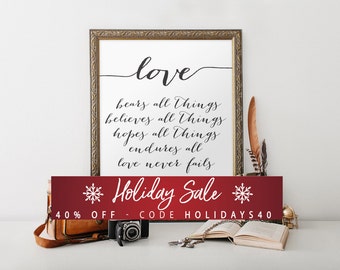 love
bears all things
believes all things
hopes all things
endures all
love never fails
Holiday Sale
40% OFF - CODE HOLIDAYS40